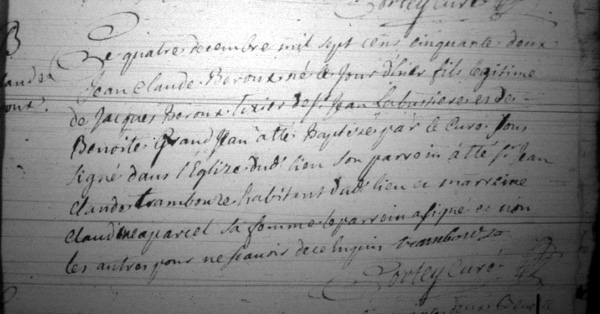 Cortey Curé
B
Le quatre decembre mil sept cens cinquante deux
Jean Claude Beroux né le jour d'hier fils legitime
de Jacques Beroux de St Jean Labussiere et de
Benoite Grand Jean a été Baptizé par le Curé sous
signé dans l'Eglize dud. lieu son parrein a été Sr Jean
Claude trambouze habitant dud. lieu et marreine
Claudine aparcel sa femme le parrein a signé et non
les autres pour ne scavoir de ce enquis trambouze
Cortey Curé